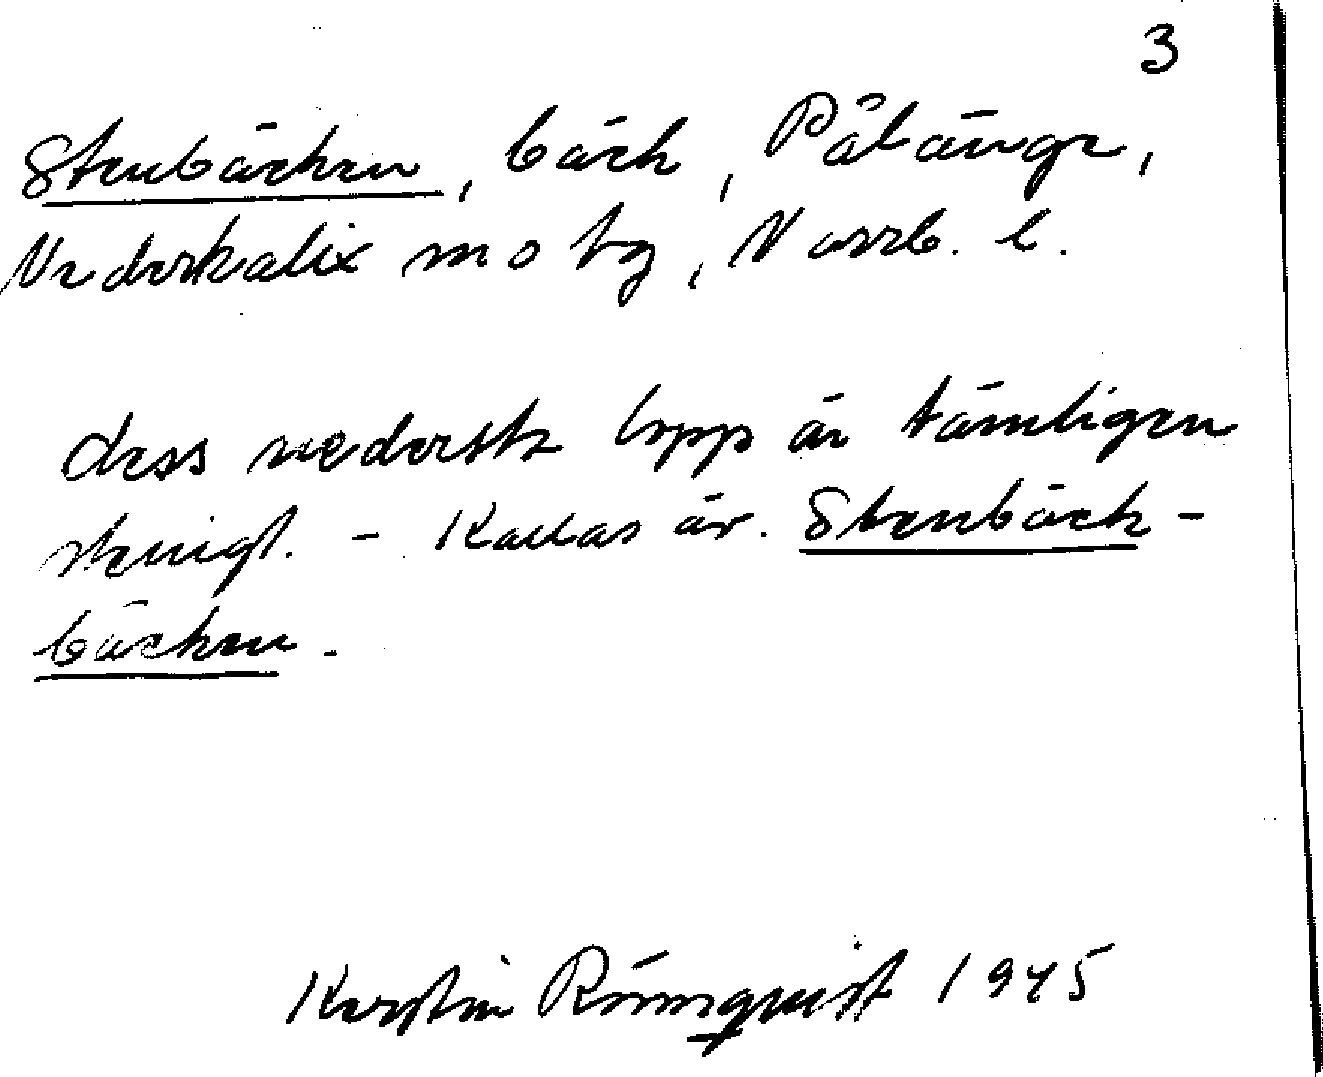 3
Stenbäcken, bäck, Pålänge,
Nederkalix sn o tg, Norrb. l.
dess nedersta lopp är tämligen
stenigt. - Kallas äv. Stenbäck-
bäcken.
Kerstin Rönnquist 1945